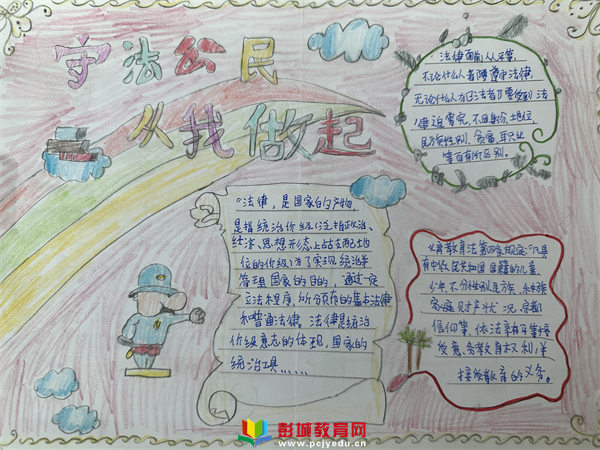 守法公民
从我做起
法律面前人人平等，
不论什么人都要遵守法律，
无论什么人犯法都要受到法
律追究，不因身份、地位，
民族性别、贫富、职业
等而有所区别。
"法律，是国家的产物，
是指统治阶级（泛指政治、
经济、思想形态上占支配地
位的阶级），为了实现统治并
管理国家的目的，通过一定
立法程序，所颁布的基本法律
和普通法律。法律是统治
阶级意志的体现，国家的
统治工具……
义务教育法第四条规定："凡具
有中华人民共和国国籍的儿童、
少年，不分性别、民族、种族、
家庭财产状况、宗教
信仰等，依法享有平等接
受义务教育权利，并
接受教育的义务。
彭城教育网
www.pcjyedu.cn